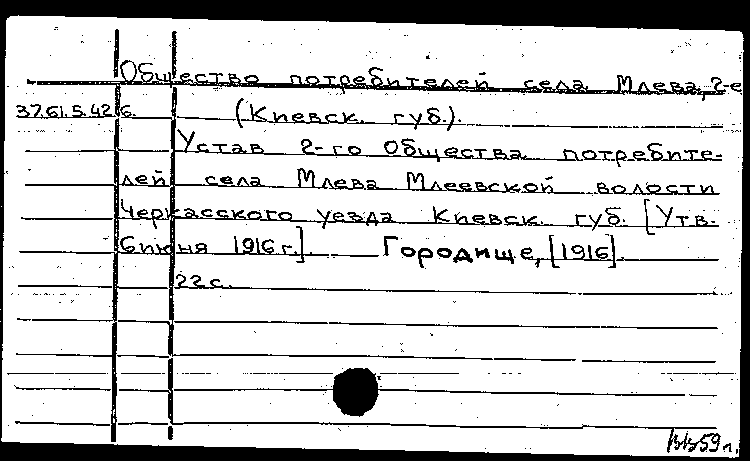 Общество потребителей села Млева, 2-е
37.61.5.426. (Киевск. губ.).
Устав 2-го Общества потребите-
лей села Млева Млеевской волости
Черкасского уезда Киевск. губ. [Утв.
6 июня 1916 г.]. Городище, [1916].
22 с.